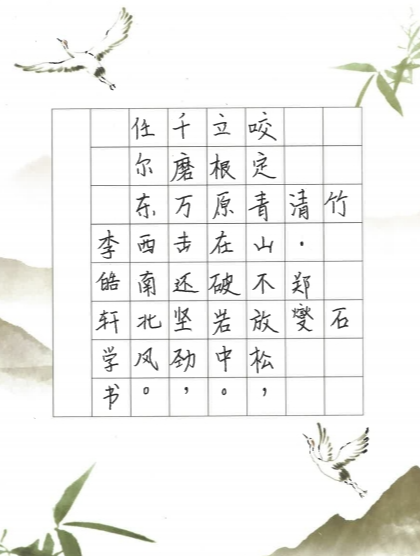 竹石
清·郑燮
咬定青山不放松，
立根原在破岩中。
千磨万击还坚劲，
任尔东西南北风。
李皓轩学书